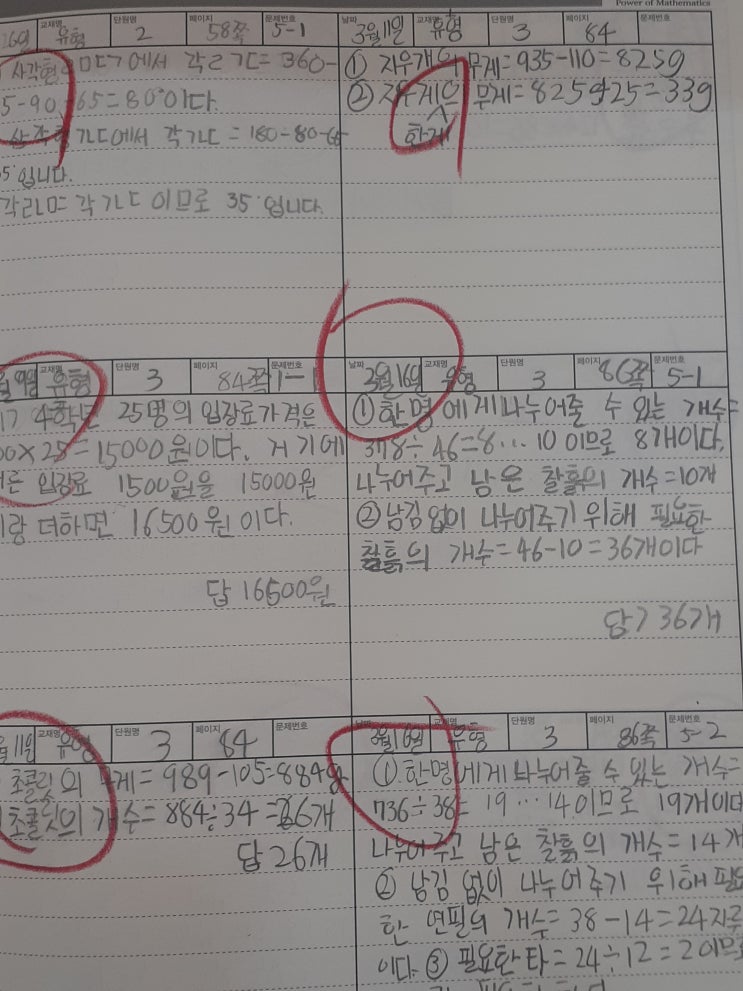 Power of Mathematics
26일 교재명 유형 단원명 2 페이지 58쪽 문제번호 5-1
사각형 ㅁㄴㄱ에서 각ㄹㄱㄷ=360-
5-90-65=80°이다.
삼각형 ㄱㄴㄷ에서 각ㄱㄴㄷ=180-80-65
5°입니다.
각ㄹㄴㅁ 각ㄱㄴㄷ이므로 35°입니다.
날짜 3월 11일 교재명 유형 단원명 3 페이지 84 문제번호
① 지우개의 무게=935-110=825g
② 지우개의 무게=825÷25=33g
한개
월 9일 교재명 유형 단원명 3 페이지 84쪽 문제번호 1-1
4학년 25명의 입장료가격은
00×25=15000원이다. 거기에
른 입장료 1500원을 15000원
랑 더하면 16500원이다.
답 16500원
날짜 3월 16일 교재명 유형 단원명 3 페이지 86쪽 문제번호 5-1
① 한명에게 나누어줄 수 있는 개수=
378÷46=8…10이므로 8개이다.
나누어주고 남은 찰흙의 개수=10개
② 남김 없이 나누어주기 위해 필요한
찰흙의 개수=46-10=36개이다
답> 36개
월 11일 교재명 유형 단원명 3 페이지 84 문제번호
초콜릿의 무게=989-105=884g
초콜릿의 개수=884÷34=26개
답 26개
날짜 3월 16일 교재명 유형 단원명 3 페이지 86쪽 문제번호 5-2
① 한명에게 나누어줄 수 있는 개수=
736÷38=19…14이므로 19개이다
나누어주고 남은 찰흙의 개수=14개
② 남김 없이 나누어주기 위해 필요
한 연필의 개수=38-14=24자루
이다. ③ 필요한 타=24÷12=2이므로